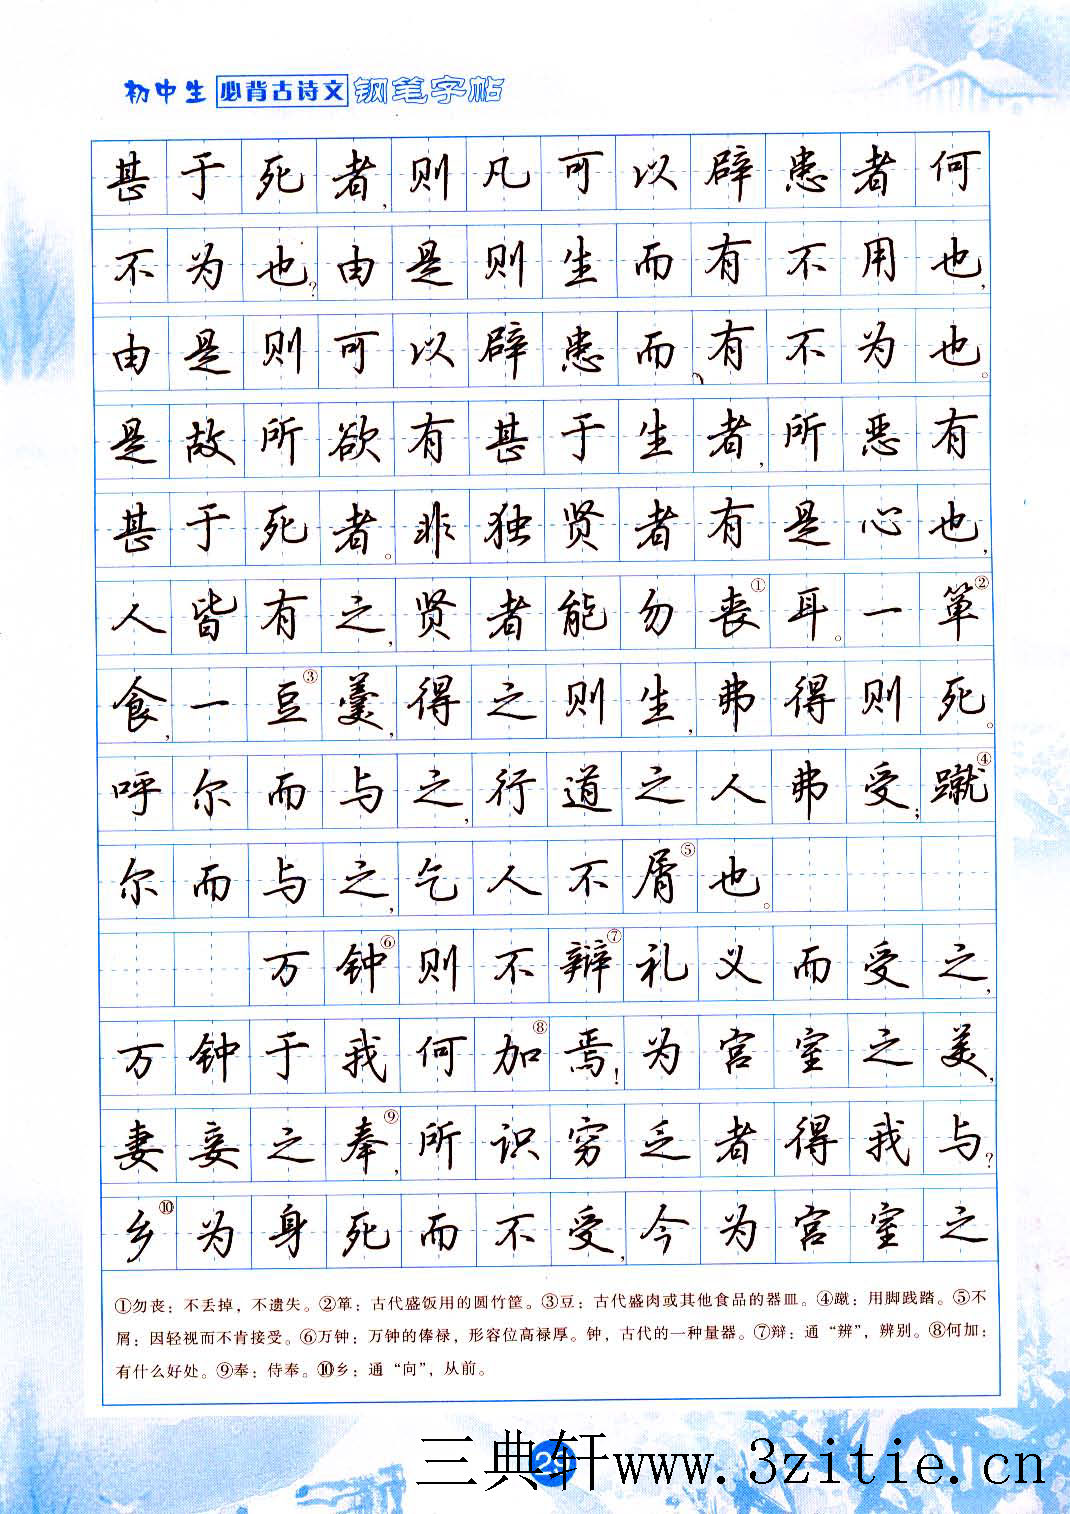 初中生必背古诗文钢笔字帖
甚于死者,则凡可以辟患者何
不为也?由是则生而有不用也,
由是则可以辟患而有不为也。
是故所欲有甚于生者,所恶有
甚于死者。非独贤者有是心也,
人皆有之,贤者能勿丧①耳。一箪②
食,一豆③羹,得之则生,弗得则死。
呼尔而与之,行道之人弗受;蹴④
尔而与之,乞人不屑⑤也。
万钟⑥则不辩⑦礼义而受之,
万钟于我何加⑧焉!为宫室之美,
妻妾之奉⑨,所识穷乏者得我与?
乡⑩为身死而不受,今为宫室之
①勿丧:不丢掉,不遗失。②箪:古代盛饭用的圆竹筐。③豆:古代盛肉或其他食品的器皿。④蹴:用脚践踏。⑤不
屑:因轻视而不肯接受。⑥万钟:万钟的俸禄,形容位高禄厚。钟,古代的一种量器。⑦辩:通“辨”,辨别。⑧何加:
有什么好处。⑨奉:侍奉。⑩乡:通“向”,从前。
三典轩www.3zitie.cn